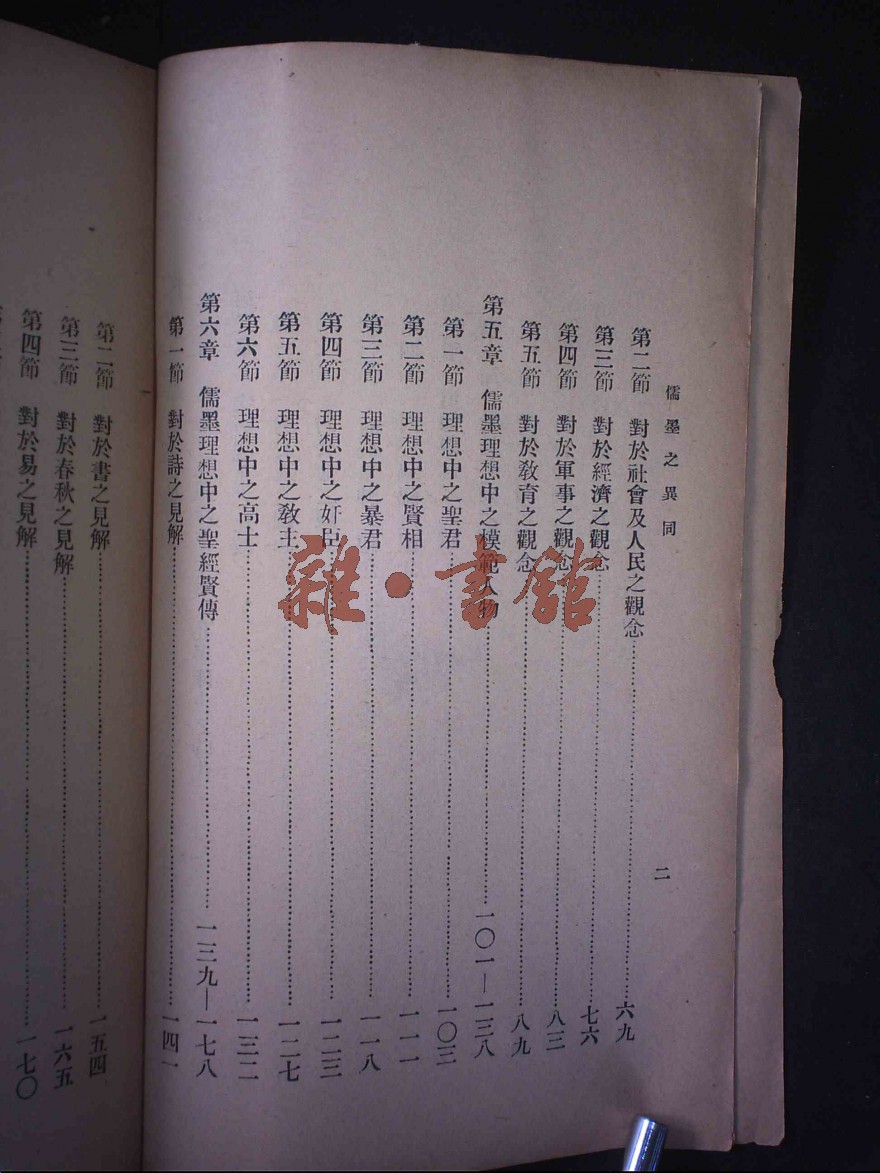 儒墨之異同
二
第二節　對於社會及人民之觀念……六九
第三節　對於經濟之觀念……七六
第四節　對於軍事之觀念……八三
第五節　對於敎育之觀念……八九
第五章　儒墨理想中之模範人物……一〇一—一三八
第一節　理想中之聖君……一〇三
第二節　理想中之賢相……一一一
第三節　理想中之暴君……一一八
第四節　理想中之奸臣……一二三
第五節　理想中之敎主……一二七
第六節　理想中之高士……一三二
第六章　儒墨理想中之聖經賢傳……一三九—一七八
第一節　對於詩之見解……一四一
第二節　對於書之見解……一五四
第三節　對於春秋之見解……一六五
第四節　對於易之見解……一七〇
雜·書館